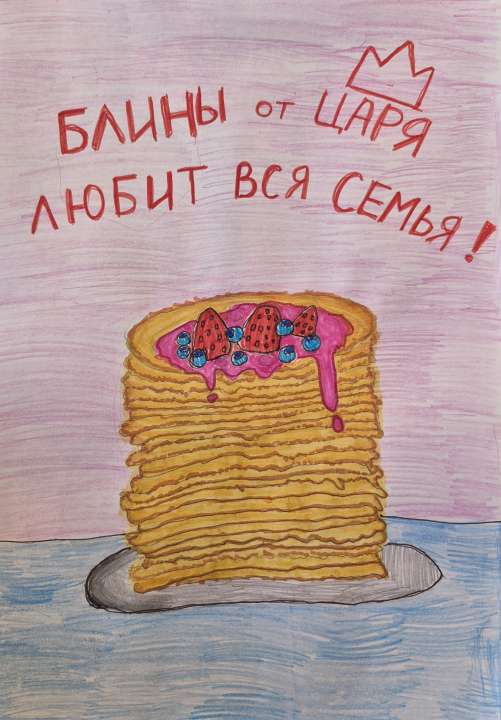 БЛИНЫ от ЦАРЯ
ЛЮБИТ ВСЯ СЕМЬЯ!